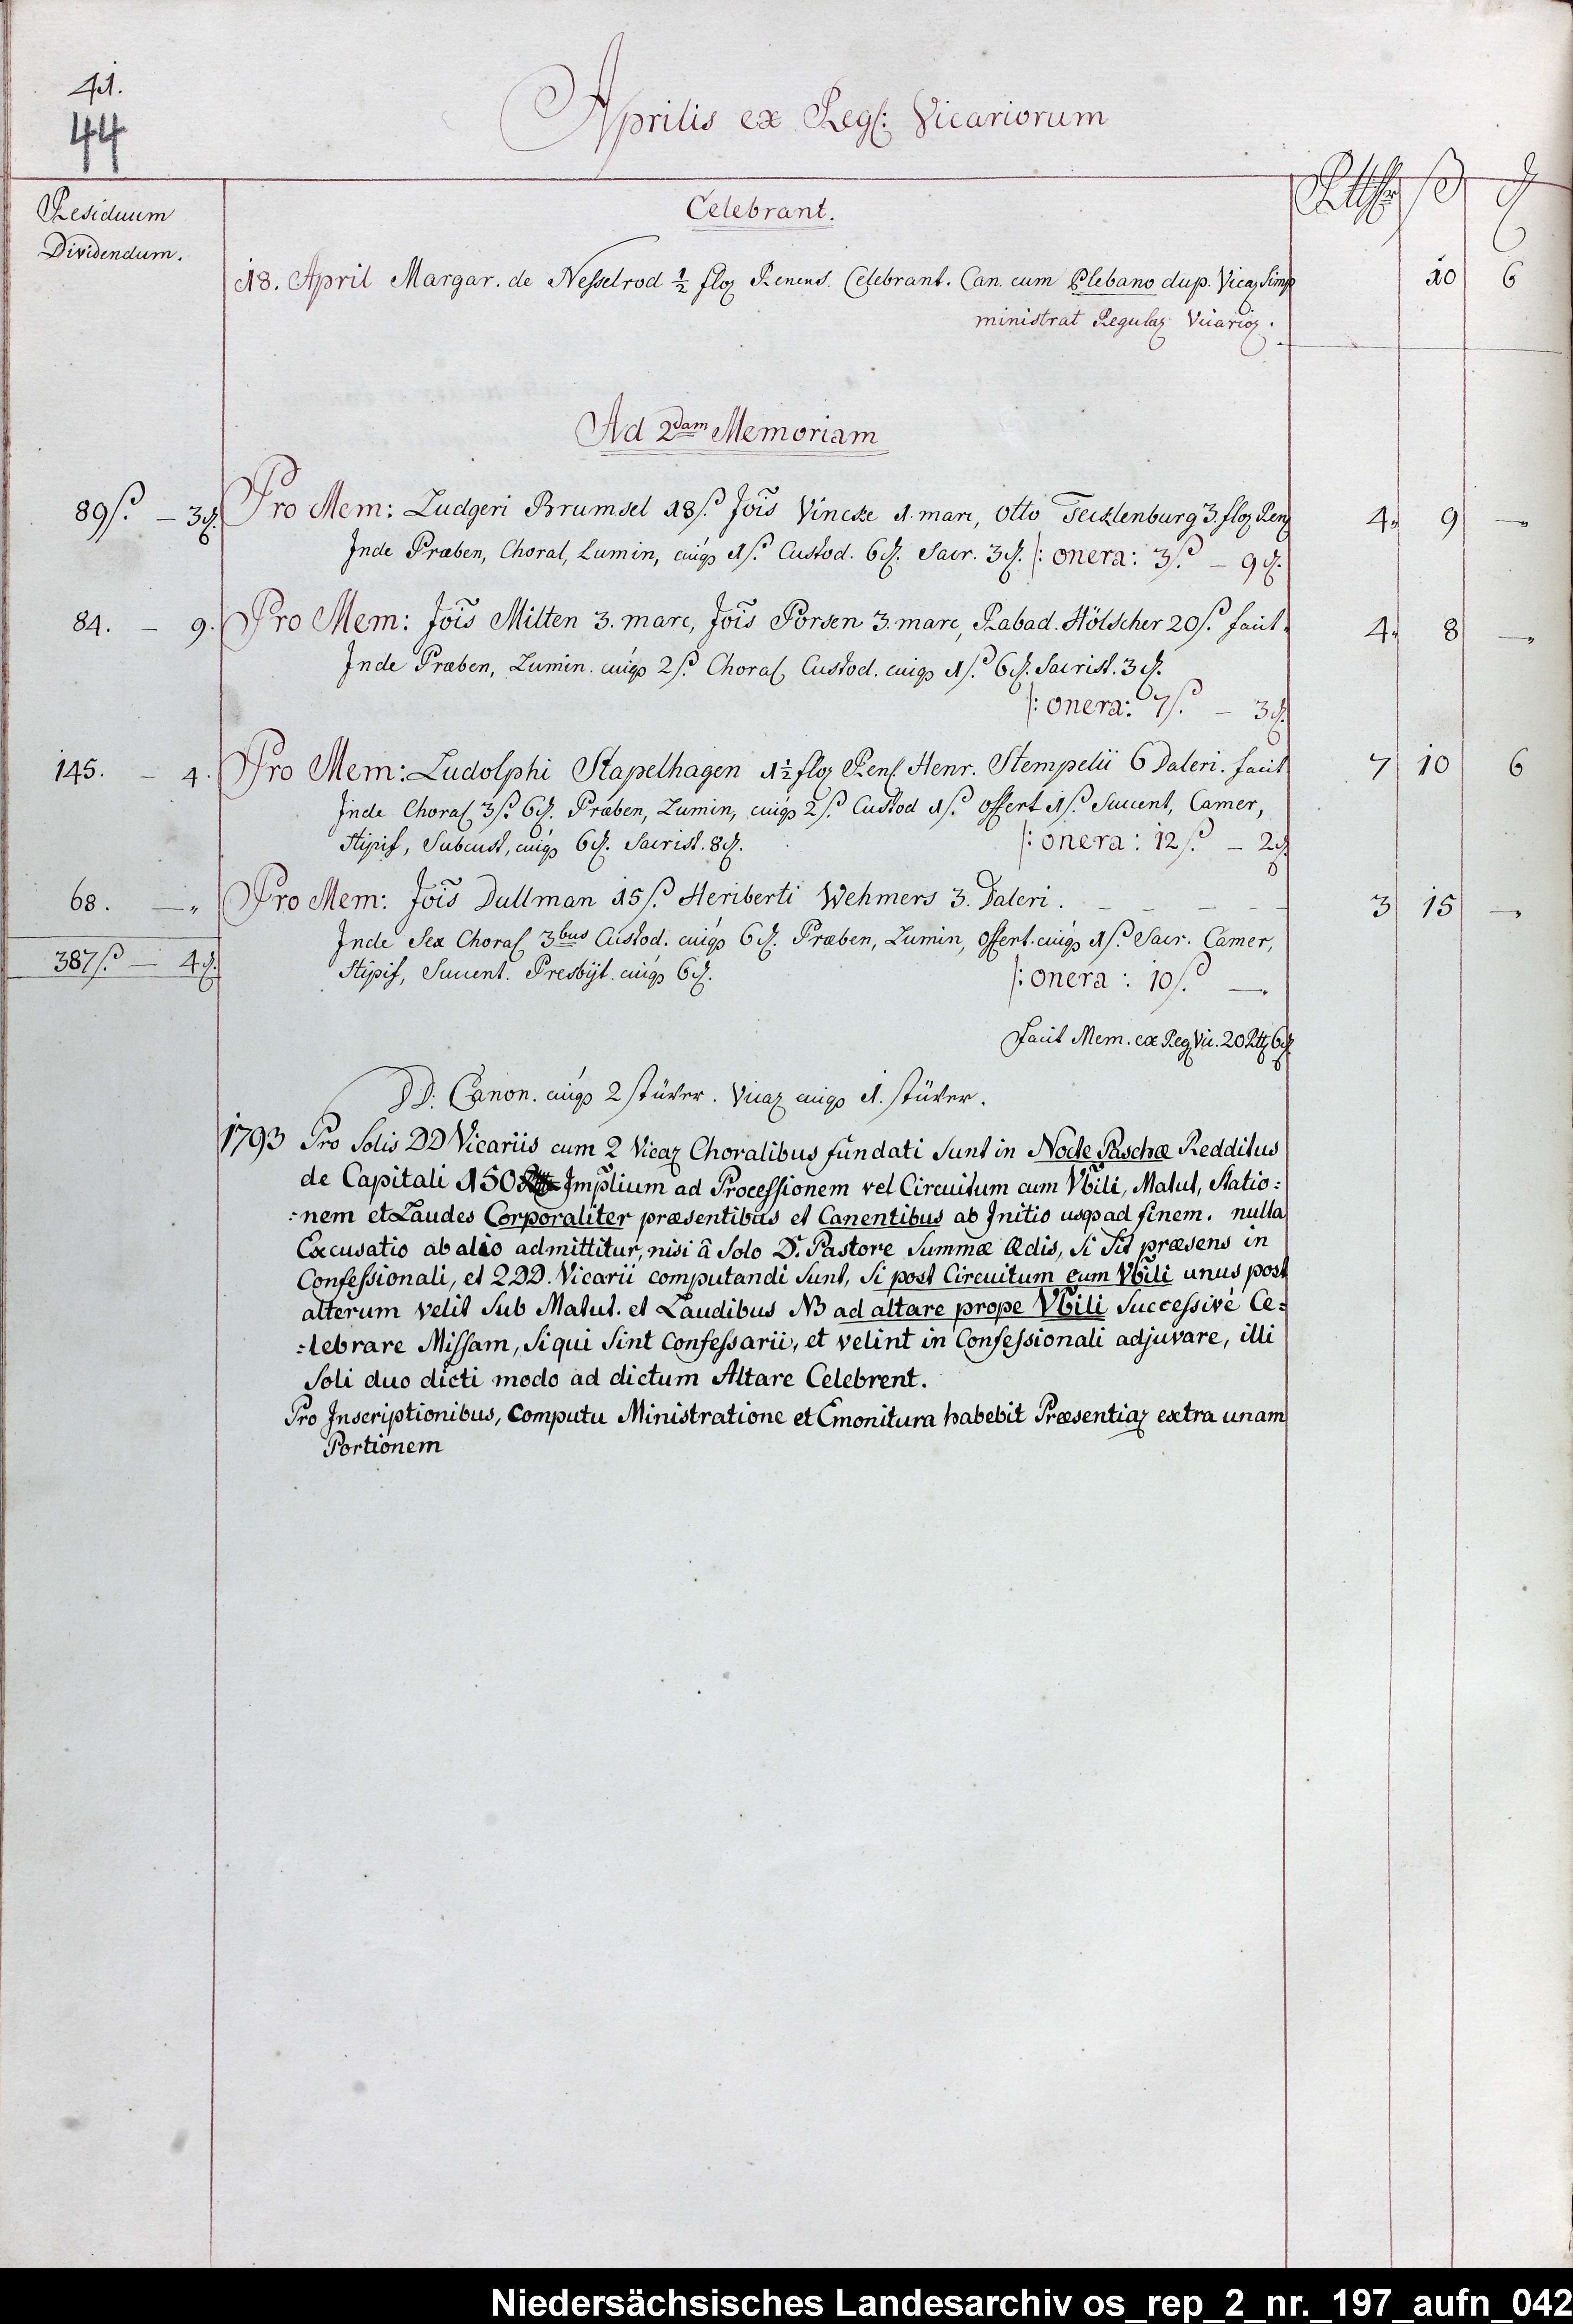 41.
44
Aprilis ex Regſ: Vicariorum
Residuum
Dividendum.
Celebrant.
Rtthlr ß ₰
18. April Margar. de Nesselrod ½ floꝝ Renens. Celebrant. Can. cum Plebano dup. Vicaꝝ Simp 10 6
ministrat Regulaꝝ Vicarioꝝ.
Ad 2dam Memoriam
89ß. – 3₰. Pro Mem: Ludgeri Brumsel 18ß. Jois̃ Vincke 1. marc, Otto Tecklenburg 3. floꝝ Renꝝ 4„ 9 —
Inde Præben, Choral, Lumin, cuiqs 1ß. Custod. 6₰. Sacr. 3₰. /: onera: 3ß. – 9₰.
84. – 9. Pro Mem: Jois̃ Milten 3. marc, Jois̃ Porsen 3. marc, Rabad. Hölscher 20ß. facit. 4„ 8 —
Inde Præben, Lumin. cuiqs 2ß. Choraſ Custod. cuiqs 1ß. 6₰. Sacrist. 3₰.
/: onera: 7ß. – 3₰.
145. – 4. Pro Mem: Ludolphi Stapelhagen 1½ floꝝ Renſ. Henr. Stempelii 6 Daleri. facit 7 10 6
Inde Choraſ 3ß. 6₰. Præben, Lumin, cuiqs 2ß. Custod 1ß. offert 1ß. Succent, Camer,
Stipiſ, Subcust, cuiqs 6₰. Sacrist. 8₰. /: onera: 12ß. – 2₰
68. —„ Pro Mem: Jois̃ Dullman 15ß. Heriberti Wehmers 3. Daleri. – – – – – 3 15 —
Inde Sex Choraſ 3bus Custod. cuiqs 6₰. Præben, Lumin, offert. cuiqs 1ß. Sacr. Camer,
387ß. – 4₰. Stipiſ, Succent. Presbijt. cuiqs 6₰. /: onera: 10ß. —.
Facit Mem. ex Regꝝ Vic. 20 Rttꝝ 6₰
DD. Canon. cuiqs 2 stüver. Vicaꝝ cuiqs 1. stüver.
1793 Pro Solis DD Vicariis cum 2 Vicaꝝ Choralibus fundati sunt in Nocte Paschæ Redditus
de Capitali 150 Implium ad Processionem vel Circuitum cum Vbili, Matut, Statio:
:nem et Laudes Corporaliter præsentibus et Canentibus ab Initio usqs ad finem. nulla
Excusatio ab alio admittitur, nisi â Solo D. Pastore Summæ Ædis, si sit præsens in
Confessionali, et 2 DD. Vicarii computandi sunt, si post Circuitum cum Vbili unus post
alterum velit sub Matut. et Laudibus NB ad altare prope Vbili successivè Ce:
:lebrare Missam, siqui sint Confessarii, et velint in Confessionali adjuvare, illi
soli duo dicti modo ad dictum Altare Celebrent.
Pro Inscriptionibus, Computu Ministratione et Emonitura habebit Præsentiaꝝ extra unam
Portionem
Niedersächsisches Landesarchiv os_rep_2_nr._197_aufn_042